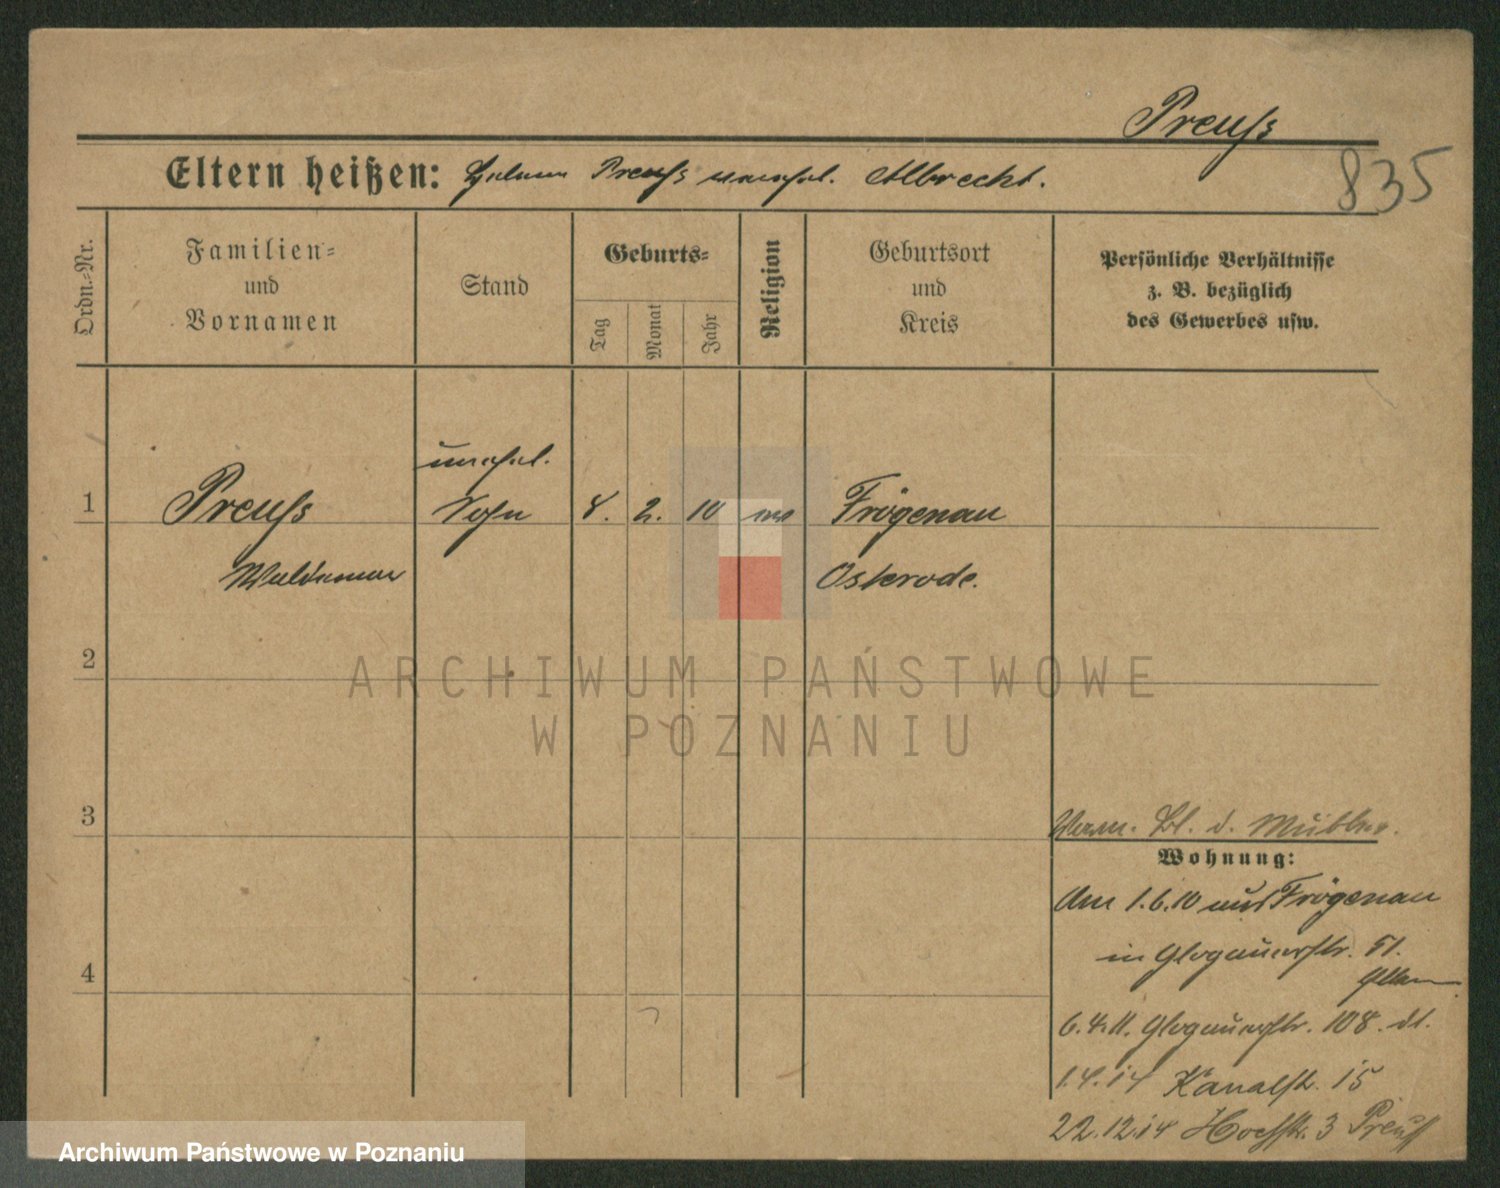 Preuß
835
Eltern heißen: Preuß verehel. Albrecht.
Ordn.-Nr.
Familien-
und
Vornamen
Stand
Geburts-
Tag
Monat
Jahr
Religion
Geburtsort
und
Kreis
Persönliche Verhältnisse
z. B. bezüglich
des Gewerbes usw.
unehel.
1 Preuß Sohn 8. 2. 10 Frögenau
Waldemar Osterode.
2
ARCHIWUM PAŃSTWOWE
W POZNANIU
3
Bl. d. Mutter.
Wohnung:
Am 1.6.10 aus Frögenau
in Glogauerstr. 51.
4
6.4.11. Glogauerstr. 108. dt.
1.4.14 Kanalstr. 15
22.12.14 Hochstr. 3 Preuß
Archiwum Państwowe w Poznaniu